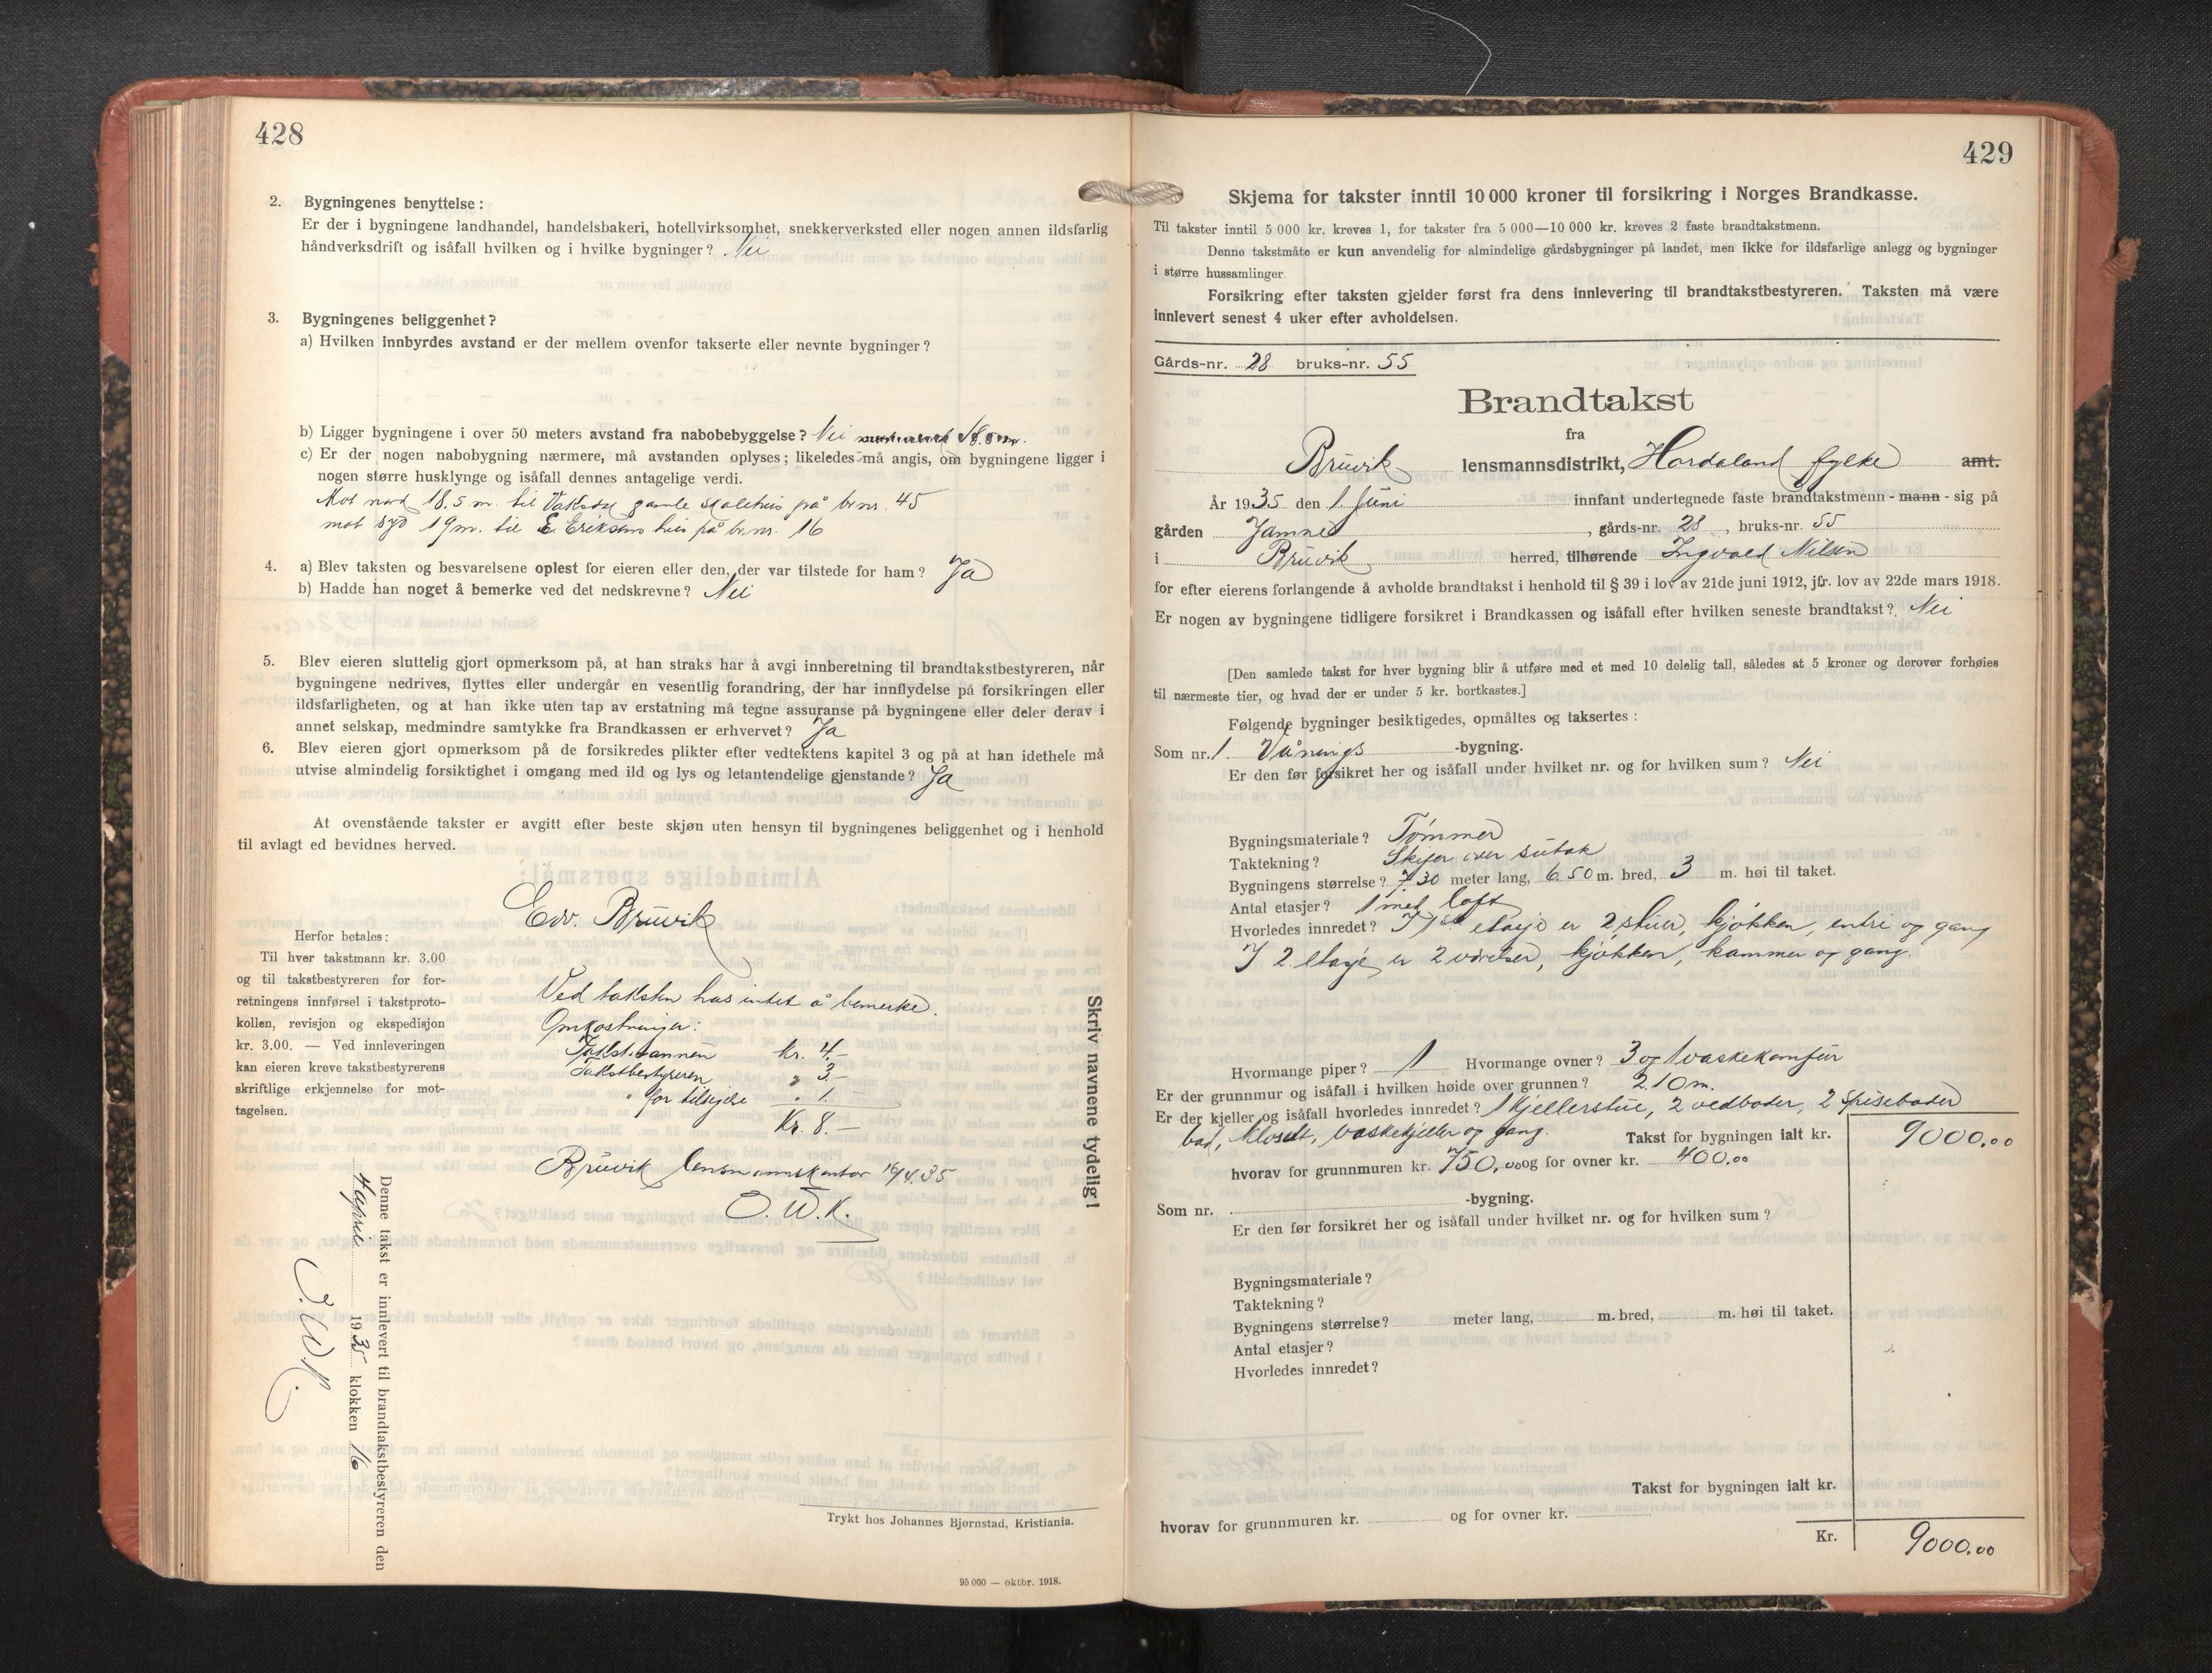 428
2. Bygningenes benyttelse:
Er der i bygningene landhandel, handelsbakeri, hotellvirksomhet, snekkerverksted eller nogen annen ildsfarlig
håndverksdrift og isåfall hvilken og i hvilke bygninger? Nei
3. Bygningenes beliggenhet?
a) Hvilken innbyrdes avstand er der mellem ovenfor takserte eller nevnte bygninger?
b) Ligger bygningene i over 50 meters avstand fra nabobebyggelse? Nei
c) Er der nogen nabobygning nærmere, må avstanden oplyses; likeledes må angis, om bygningene ligger i
nogen større husklynge og isåfall dennes antagelige verdi.
Mot nord 18.5 m. til Vaksdal gamle skolehus på br.nr. 45
mot syd 19 m. til E. Eriksens hus på br.nr. 16
4. a) Blev taksten og besvarelsene oplest for eieren eller den, der var tilstede for ham? Ja
b) Hadde han noget å bemerke ved det nedskrevne? Nei
5. Blev eieren sluttelig gjort opmerksom på, at han straks har å avgi innberetning til brandtakstbestyreren, når
bygningene nedrives, flyttes eller undergår en vesentlig forandring, der har innflydelse på forsikringen eller
ildsfarligheten, og at han ikke uten tap av erstatning må tegne assuranse på bygningene eller deler derav i
annet selskap, medmindre samtykke fra Brandkassen er erhvervet? Ja
6. Blev eieren gjort opmerksom på de forsikredes plikter efter vedtektens kapitel 3 og på at han idethele må
utvise almindelig forsiktighet i omgang med ild og lys og letantendelige gjenstande? Ja
At ovenstående takster er avgitt efter beste skjøn uten hensyn til bygningenes beliggenhet og i henhold
til avlagt ed bevidnes herved.
Edv. Bruvik
Herfor betales:
Til hver takstmann kr. 3.00
og til takstbestyreren for for-
retningens innførsel i takstproto-
kollen, revisjon og ekspedisjon
kr. 3.00. — Ved innleveringen
kan eieren kreve takstbestyrerens
skriftlige erkjennelse for mot-
tagelsen.
Ved taksten has intet å bemerke.
Omkostninger:
Takstmannen kr. 4.-
Takstbestyreren " 3.-
" for tilsigelse " 1.-
Kr. 8.-
Bruvik lensmannskontor 16/4.35
O. W. K.
Skriv navnene tydelig!
Denne takst er innlevert til brandtakstbestyreren den
4 april 1935 klokken 16
O. W. K.
Trykt hos Johannes Bjørnstad, Kristiania.
95 000 — oktbr. 1918.
429
Skjema for takster inntil 10 000 kroner til forsikring i Norges Brandkasse.
Til takster inntil 5 000 kr. kreves 1, for takster fra 5 000—10 000 kr. kreves 2 faste brandtakstmenn.
Denne takstmåte er kun anvendelig for almindelige gårdsbygninger på landet, men ikke for ildsfarlige anlegg og bygninger
i større hussamlinger.
Forsikring efter taksten gjelder først fra dens innlevering til brandtakstbestyreren. Taksten må være
innlevert senest 4 uker efter avholdelsen.
Gårds-nr. 28 bruks-nr. 55
Brandtakst
fra
Bruvik lensmannsdistrikt, Hordaland fylke amt.
År 1935 den 1. Juni innfant undertegnede faste brandtakstmenn - mann - sig på
gården Jamne, gårds-nr. 28, bruks-nr. 55
i Bruvik herred, tilhørende Ingvald Nilsen
for efter eierens forlangende å avholde brandtakst i henhold til § 39 i lov av 21de juni 1912, jfr. lov av 22de mars 1918.
Er nogen av bygningene tidligere forsikret i Brandkassen og isåfall efter hvilken seneste brandtakst? Nei
[Den samlede takst for hver bygning blir å utføre med et med 10 delelig tall, således at 5 kroner og derover forhøies
til nærmeste tier, og hvad der er under 5 kr. bortkastes.]
Følgende bygninger besiktigedes, opmåltes og taksertes:
Som nr. 1 Vånings -bygning.
Er den før forsikret her og isåfall under hvilket nr. og for hvilken sum? Nei
Bygningsmateriale? Tømmer
Taktekning? Skifer over sutak
Bygningens størrelse? 7.30 meter lang, 6.50 m. bred, 3 m. høi til taket.
Antal etasjer? 1 med loft
Hvorledes innredet? I 1ste etasje er 2 stuer, kjøkken, entri og gang
I 2. etasje er 2 værelser, kjøkken, kammer og gang.
Hvormange piper? 1 Hvormange ovner? 3 og 1 vaskekomfur
Er der grunnmur og isåfall i hvilken høide over grunnen? 2.10 m.
Er der kjeller og isåfall hvorledes innredet? 1 kjellerstue, 2 vedboder, 2 spiseboder
bad, klosett, vaskekjeller og gang. Takst for bygningen ialt kr. 9000.00
hvorav for grunnmuren kr. 750.00 og for ovner kr. 400.00
Som nr. -bygning.
Er den før forsikret her og isåfall under hvilket nr. og for hvilken sum?
Bygningsmateriale?
Taktekning?
Bygningens størrelse? meter lang, m. bred, m. høi til taket.
Antal etasjer?
Hvorledes innredet?
Takst for bygningen ialt kr.
hvorav for grunnmuren kr. og for ovner kr.
Kr. 9000.00